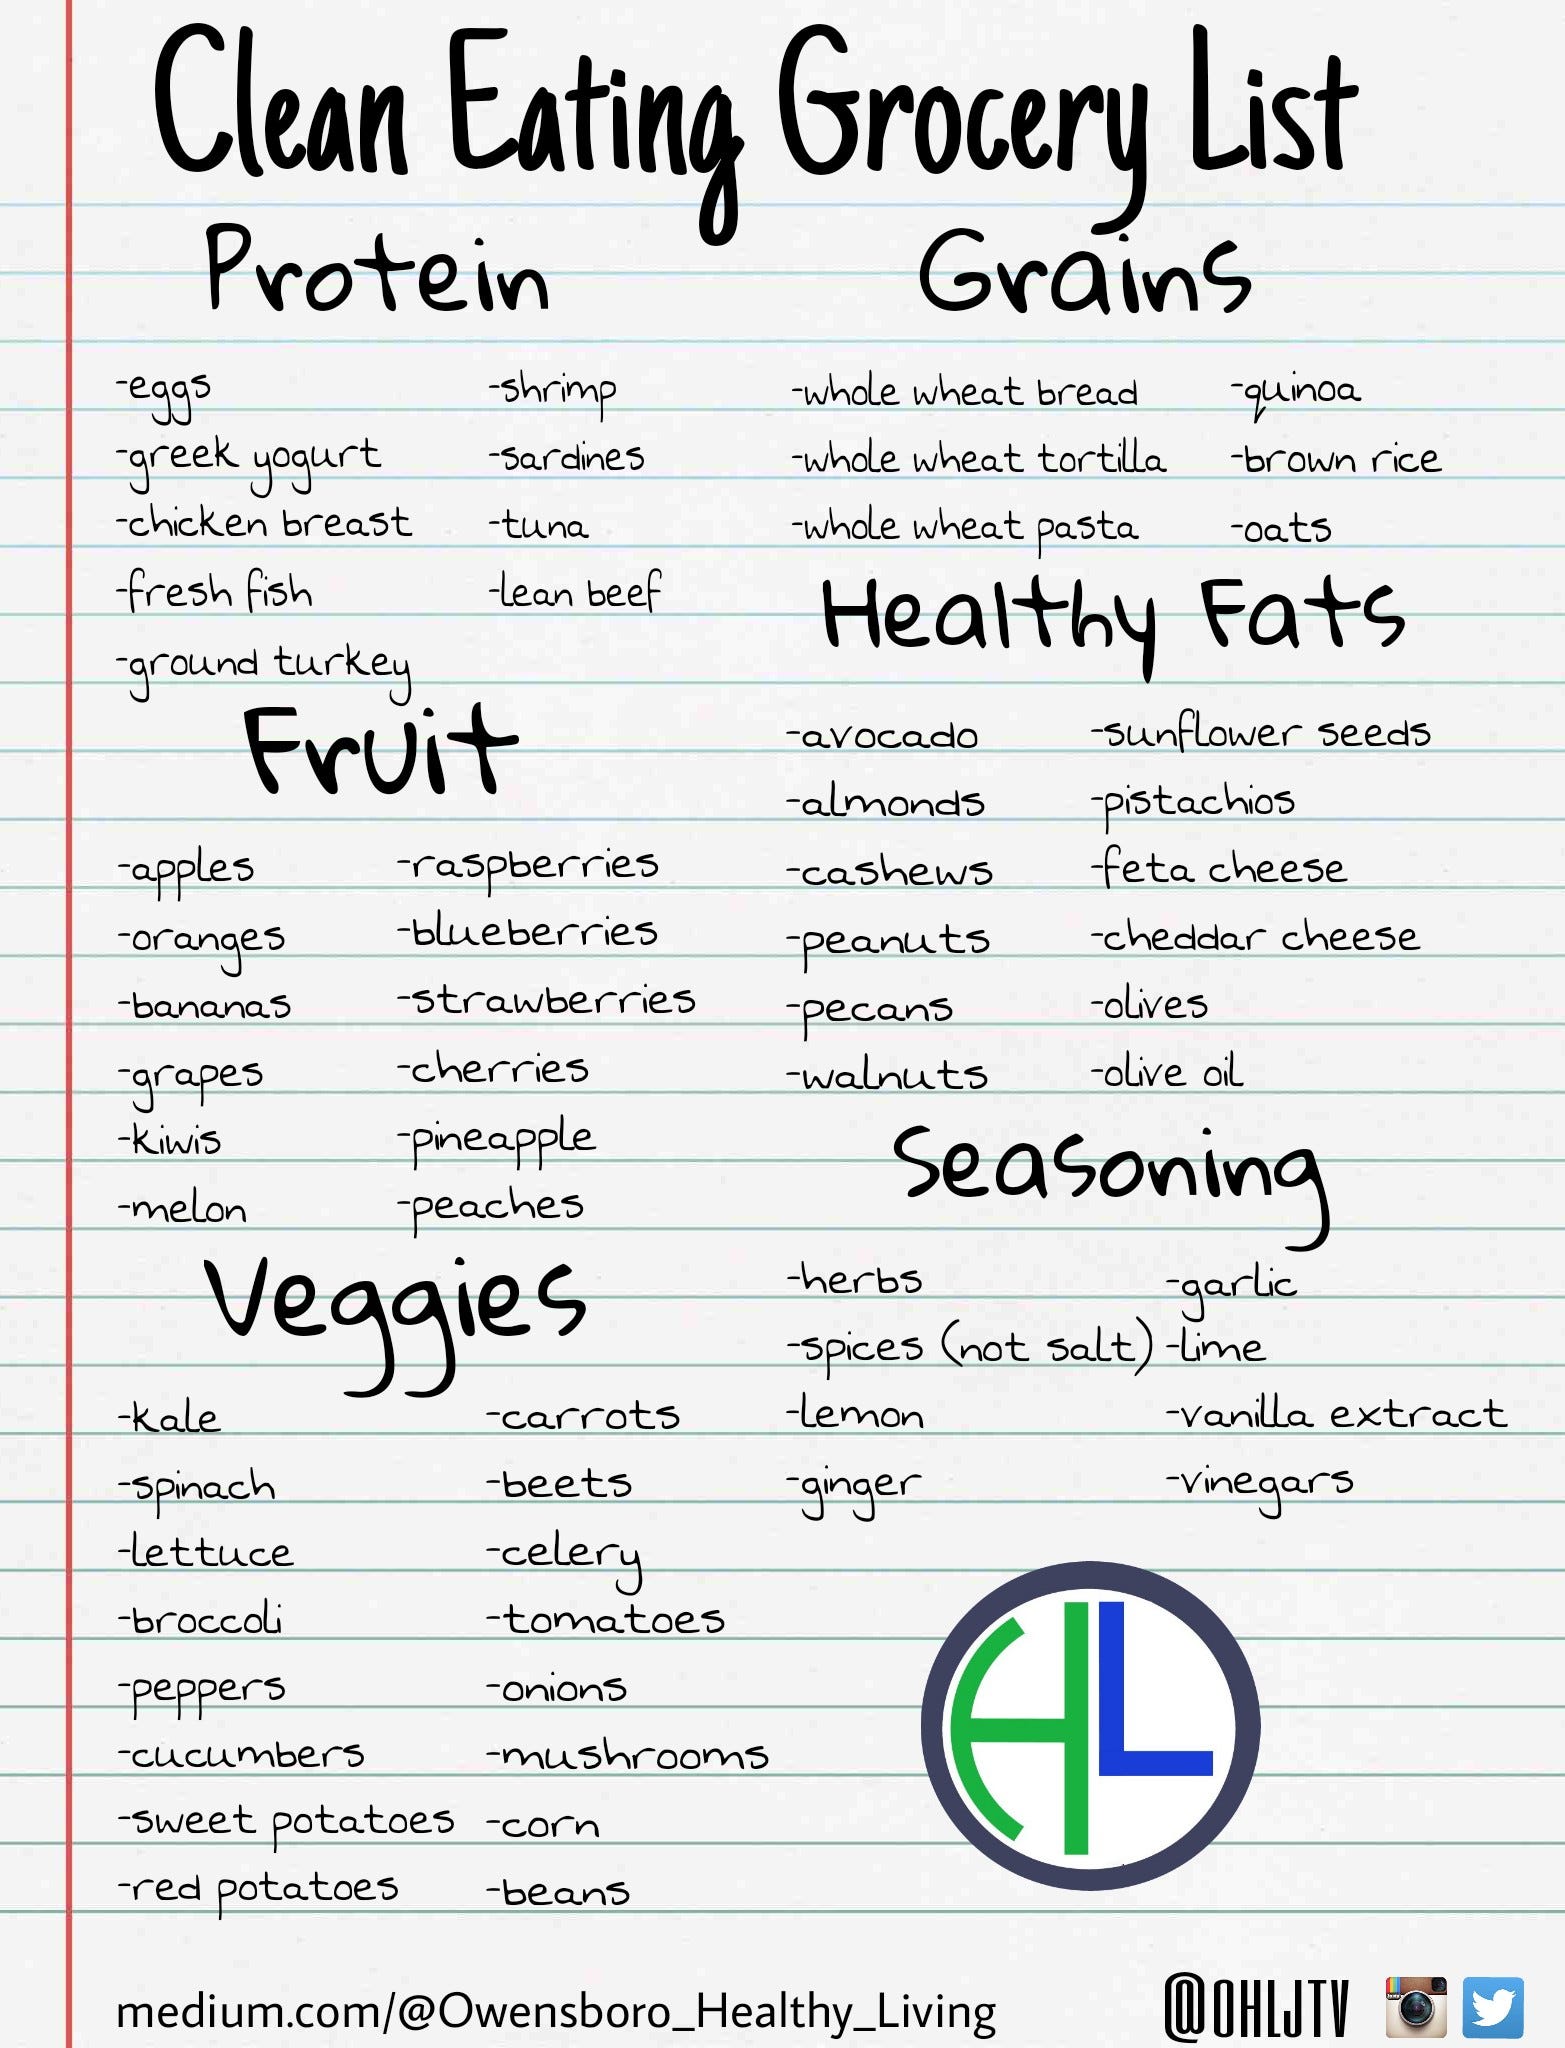 Clean Eating Grocery List
Protein
-eggs
-greek yogurt
-chicken breast
-fresh fish
-ground turkey
-shrimp
-sardines
-tuna
-lean beef
Fruit
-apples
-oranges
-bananas
-grapes
-kiwis
-melon
-raspberries
-blueberries
-strawberries
-cherries
-pineapple
-peaches
Veggies
-kale
-spinach
-lettuce
-broccoli
-peppers
-cucumbers
-sweet potatoes
-red potatoes
-carrots
-beets
-celery
-tomatoes
-onions
-mushrooms
-corn
-beans
Grains
-whole wheat bread
-whole wheat tortilla
-whole wheat pasta
-quinoa
-brown rice
-oats
Healthy Fats
-avocado
-almonds
-cashews
-peanuts
-pecans
-walnuts
-sunflower seeds
-pistachios
-feta cheese
-cheddar cheese
-olives
-olive oil
Seasoning
-herbs
-spices (not salt)
-lemon
-ginger
-garlic
-lime
-vanilla extract
-vinegars
HL
medium.com/@Owensboro_Healthy_Living
@OHLJTV